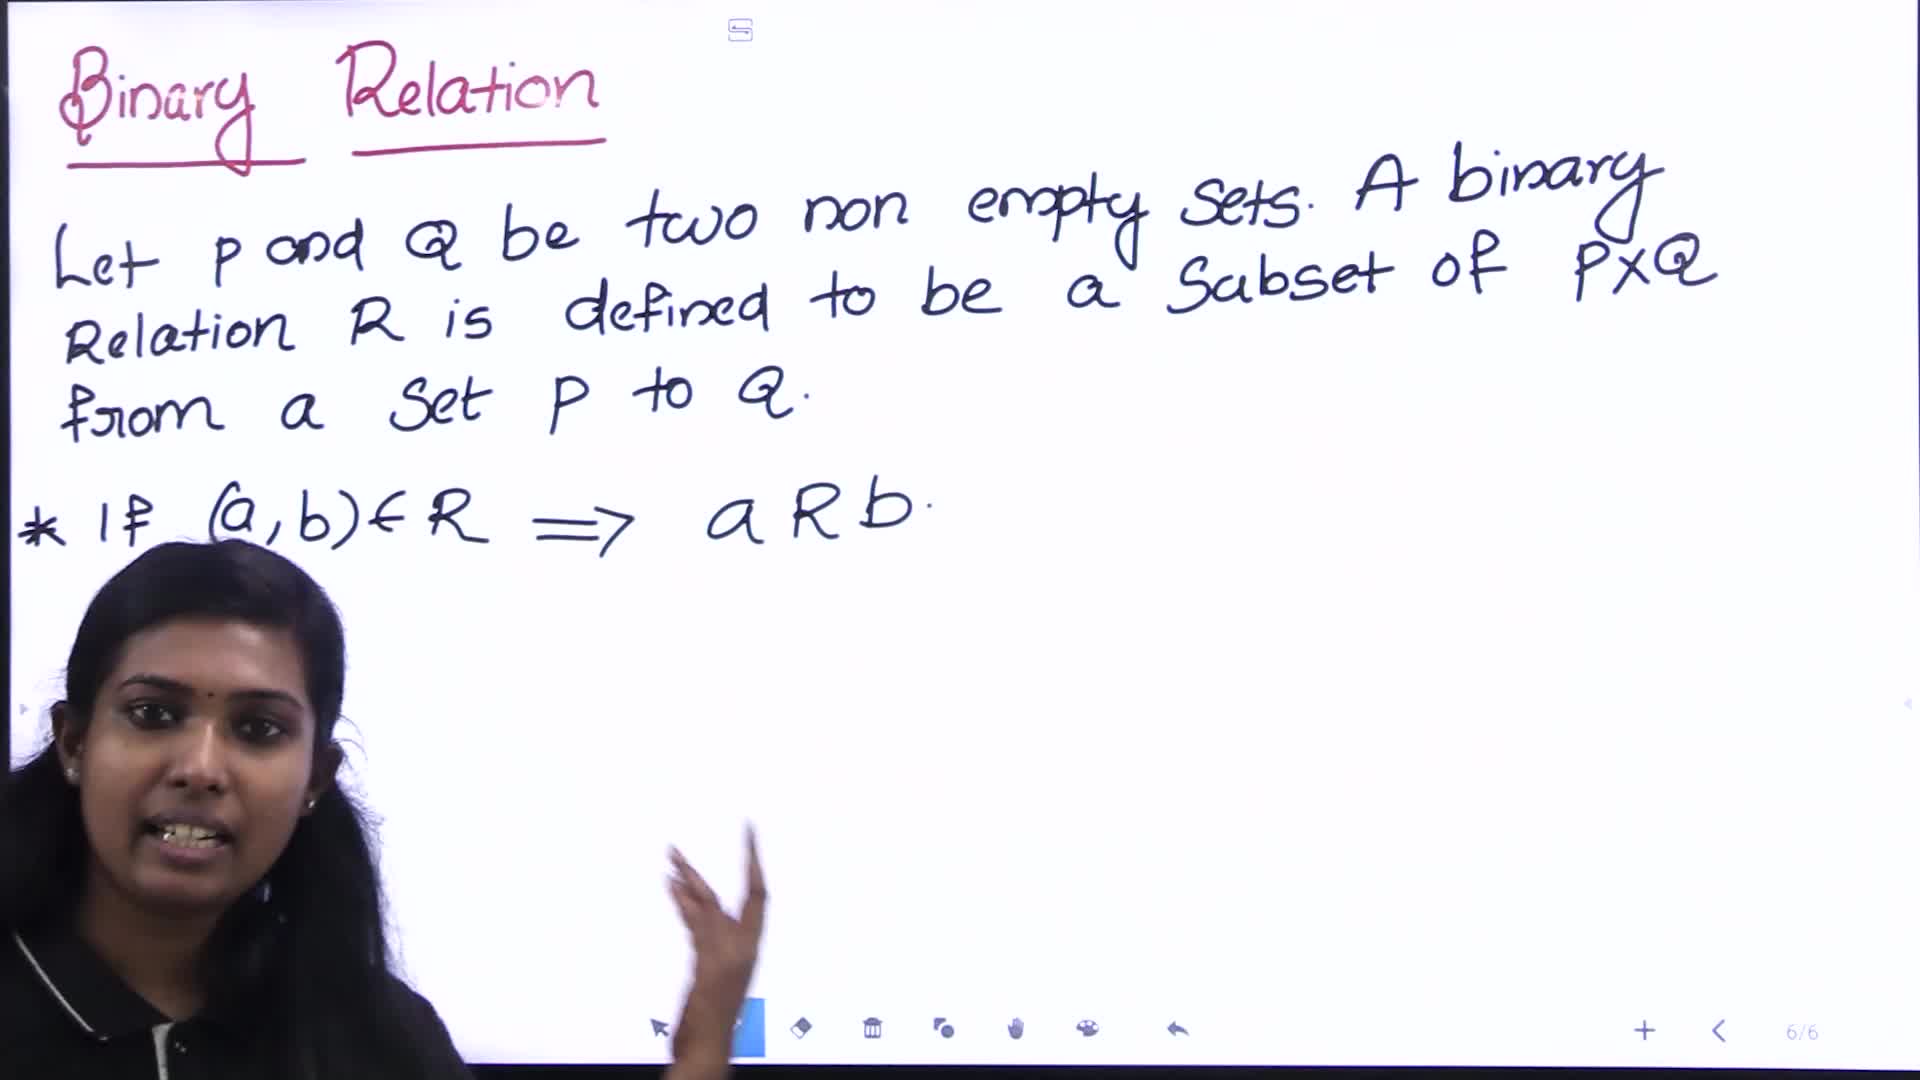 Binary Relation
Let P and Q be two non empty sets. A binary
Relation R is defined to be a Subset of P×Q
from a Set P to Q.
* If (a, b) ∈ R ⟹ a R b.
6/6